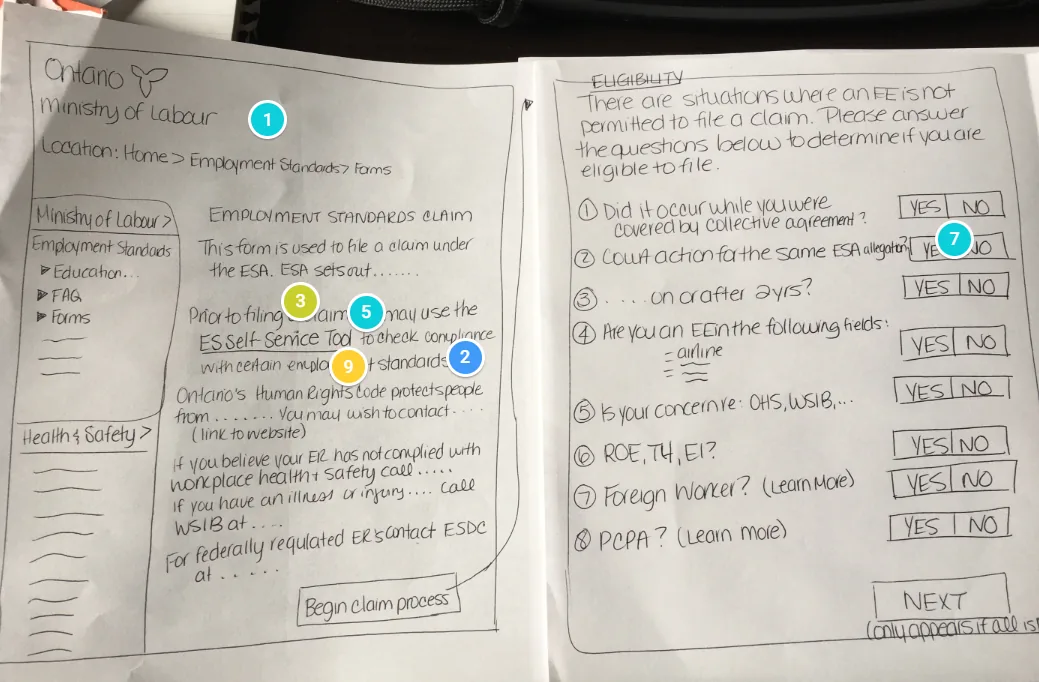 Ontario
Ministry of Labour
1
Location: Home > Employment Standards > Forms
Ministry of Labour >
Employment Standards
Education...
FAQ
Forms
Health & Safety >
EMPLOYMENT STANDARDS CLAIM
This form is used to file a claim under
the ESA. ESA sets out .......
3
Prior to filing claim may use the
5
ES Self-Service Tool to check compliance
with certain standards
9
2
Ontario's Human Rights Code protects people
from ....... You may wish to contact ....
(link to website)
If you believe your ER has not complied with
workplace health + safety call .....
If you have an illness or injury.... call
WSIB at ....
For federally regulated ER's contact ESDC
at .....
Begin claim process
ELIGIBILITY
There are situations where an EE is not
permitted to file a claim. Please answer
the questions below to determine if you are
eligible to file.
① Did it occur while you were
covered by collective agreement?
YES NO
② Court action for the same ESA allegation?
7
③ .... on or after 2yrs?
YES NO
④ Are you an EE in the following fields:
- airline
YES NO
⑤ Is your concern re: OHS, WSIB,...
YES NO
⑥ ROE, T4, EI?
YES NO
⑦ Foreign Worker? (Learn More)
YES NO
⑧ PCPA? (Learn more)
YES NO
NEXT
(only appears if all is